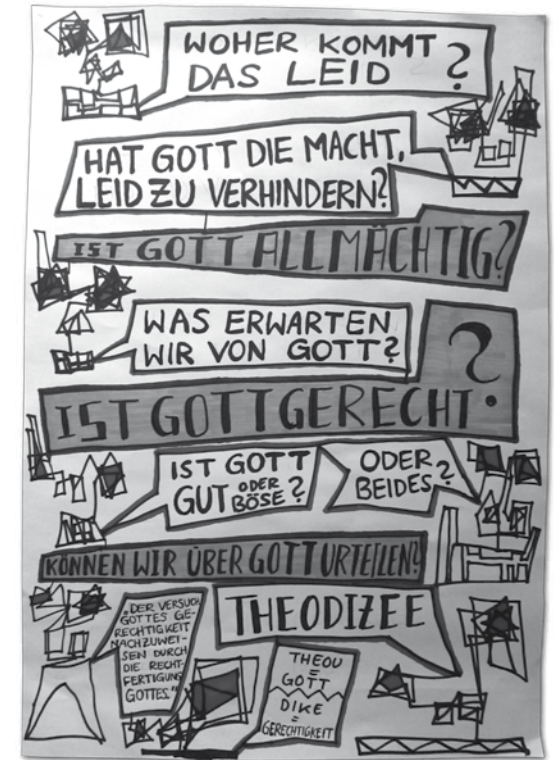 WOHER KOMMT
DAS LEID ?
HAT GOTT DIE MACHT,
LEID ZU VERHINDERN?
IST GOTT ALLMÄCHTIG?
WAS ERWARTEN
WIR VON GOTT?
IST GOTT GERECHT?
IST GOTT
GUT ODER
BÖSE?
ODER
BEIDES?
KÖNNEN WIR ÜBER GOTT URTEILEN?
THEODIZEE
„DER VERSUCH
GOTTES GE-
RECHTIGKEIT
NACHZUWEI-
SEN DURCH
DIE RECHT-
FERTIGUNG
GOTTES."
THEOU
=
GOTT
DIKE
=
GERECHTIGKEIT